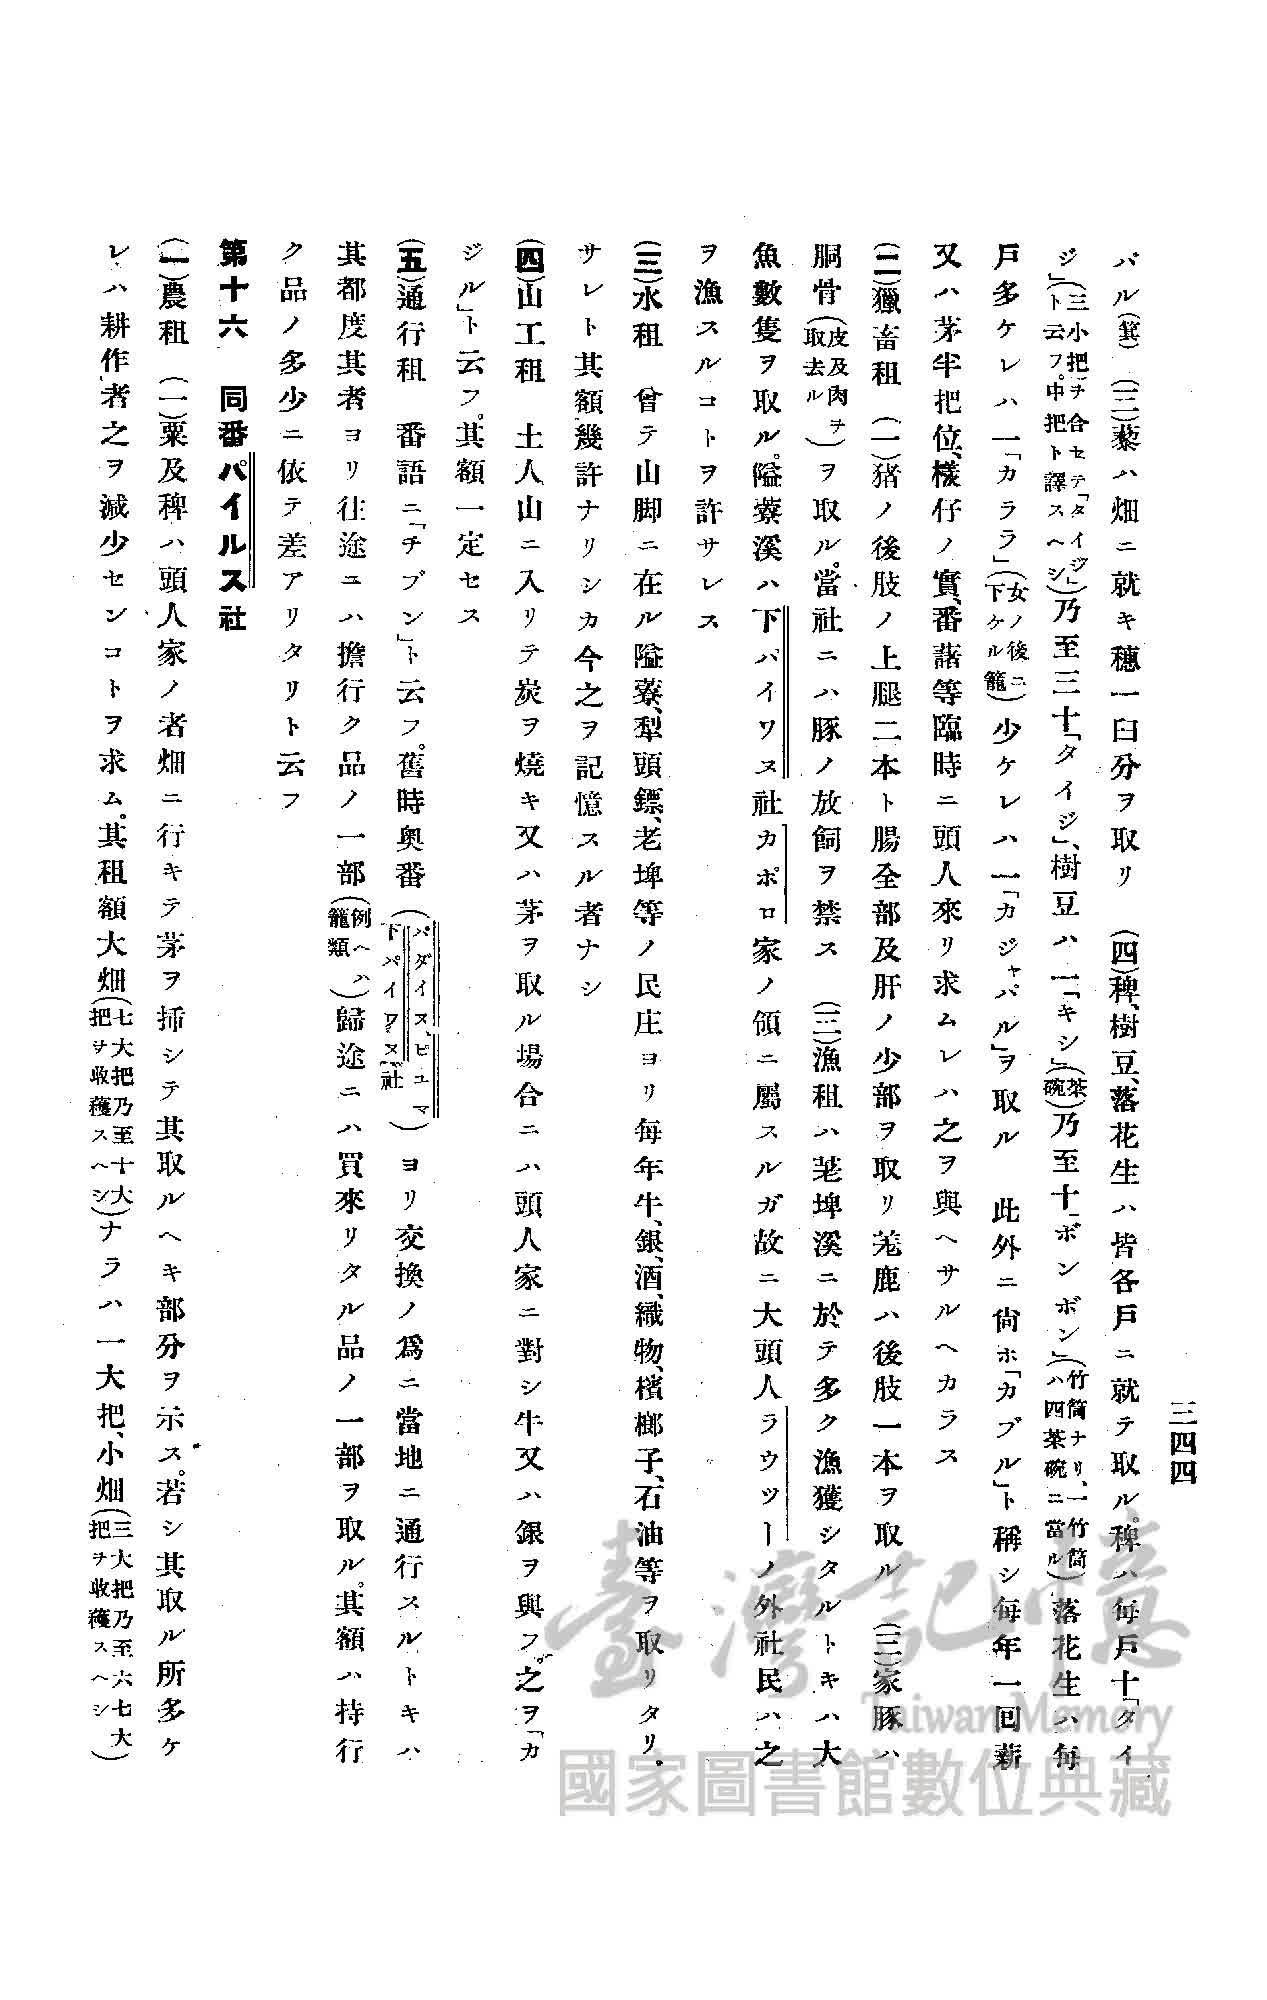 三四四
バル(箕) (三)藜ハ畑ニ就キ穗一臼分ヲ取リ (四)稗、樹豆、落花生ハ皆各戶ニ就テ取ル。稗ハ每戶十「タイ
ジ」(三小把ヲ合セテ「タイジ」ト云フ。中把ト譯スヘシ)乃至三十「タイジ」、樹豆ハ一「キシ」(茶碗)乃至十「ボンボン」(竹筒ナリ、一竹筒ハ四茶碗ニ當ル)落花生ハ每
戶多ケレハ一「カララ」(女ノ後ニ下ケル籠)少ケレハ一「カジャバル」ヲ取ル 此外ニ尙ホ「カブル」ト稱シ每年一回薪
又ハ茅半把位、檨仔ノ實、番藷等臨時ニ頭人來リ求ムレハ之ヲ與ヘサルヘカラス
(二)獵畜租 (一)猪ノ後肢ノ上腿二本ト腸全部及肝ノ少部ヲ取リ羗鹿ハ後肢一本ヲ取ル (二)家豚ハ
胴骨(皮及肉ヲ取去ル)ヲ取ル。當社ニハ豚ノ放飼ヲ禁ス (三)漁租ハ荖埤溪ニ於テ多ク漁獲シタルトキハ大
魚數隻ヲ取ル。隘藔溪ハ下パイワヌ社カポロ家ノ領ニ屬スルガ故ニ大頭人ラウツーノ外社民ハ之
ヲ漁スルコトヲ許サレス
(三)水租 曾テ山脚ニ在ル隘藔、犁頭鏢、老埤等ノ民庄ヨリ每年牛、銀、酒、織物、檳榔子、石油等ヲ取リタリ。
サレト其額幾許ナリシカ今之ヲ記憶スル者ナシ
(四)山工租 土人山ニ入リテ炭ヲ燒キ又ハ茅ヲ取ル場合ニハ頭人家ニ對シ牛又ハ銀ヲ與フ。之ヲ「カ
ジル」ト云フ。其額一定セス
(五)通行租 番語ニ「チブン」ト云フ。舊時奧番(パダイヌ、ピユマ下パイワヌ社)ヨリ交換ノ爲ニ當地ニ通行スルトキハ
其都度其者ヨリ往途ニハ擔行ク品ノ一部(例ヘハ籠類)歸途ニハ買來リタル品ノ一部ヲ取ル。其額ハ持行
ク品ノ多少ニ依テ差アリタリト云フ
第十六 同番パイルス社
(一)農租 (一)粟及稗ハ頭人家ノ者畑ニ行キテ茅ヲ揷シテ其取ルヘキ部分ヲ示ス。若シ其取ル所多ケ
レハ耕作者之ヲ減少センコトヲ求ム。其租額大畑(七大把乃至十大把ヲ收穫スヘシ)ナラハ一大把、小畑(三大把乃至六七大把ヲ收穫スヘシ)
臺灣記憶
Taiwan Memory
國家圖書館數位典藏